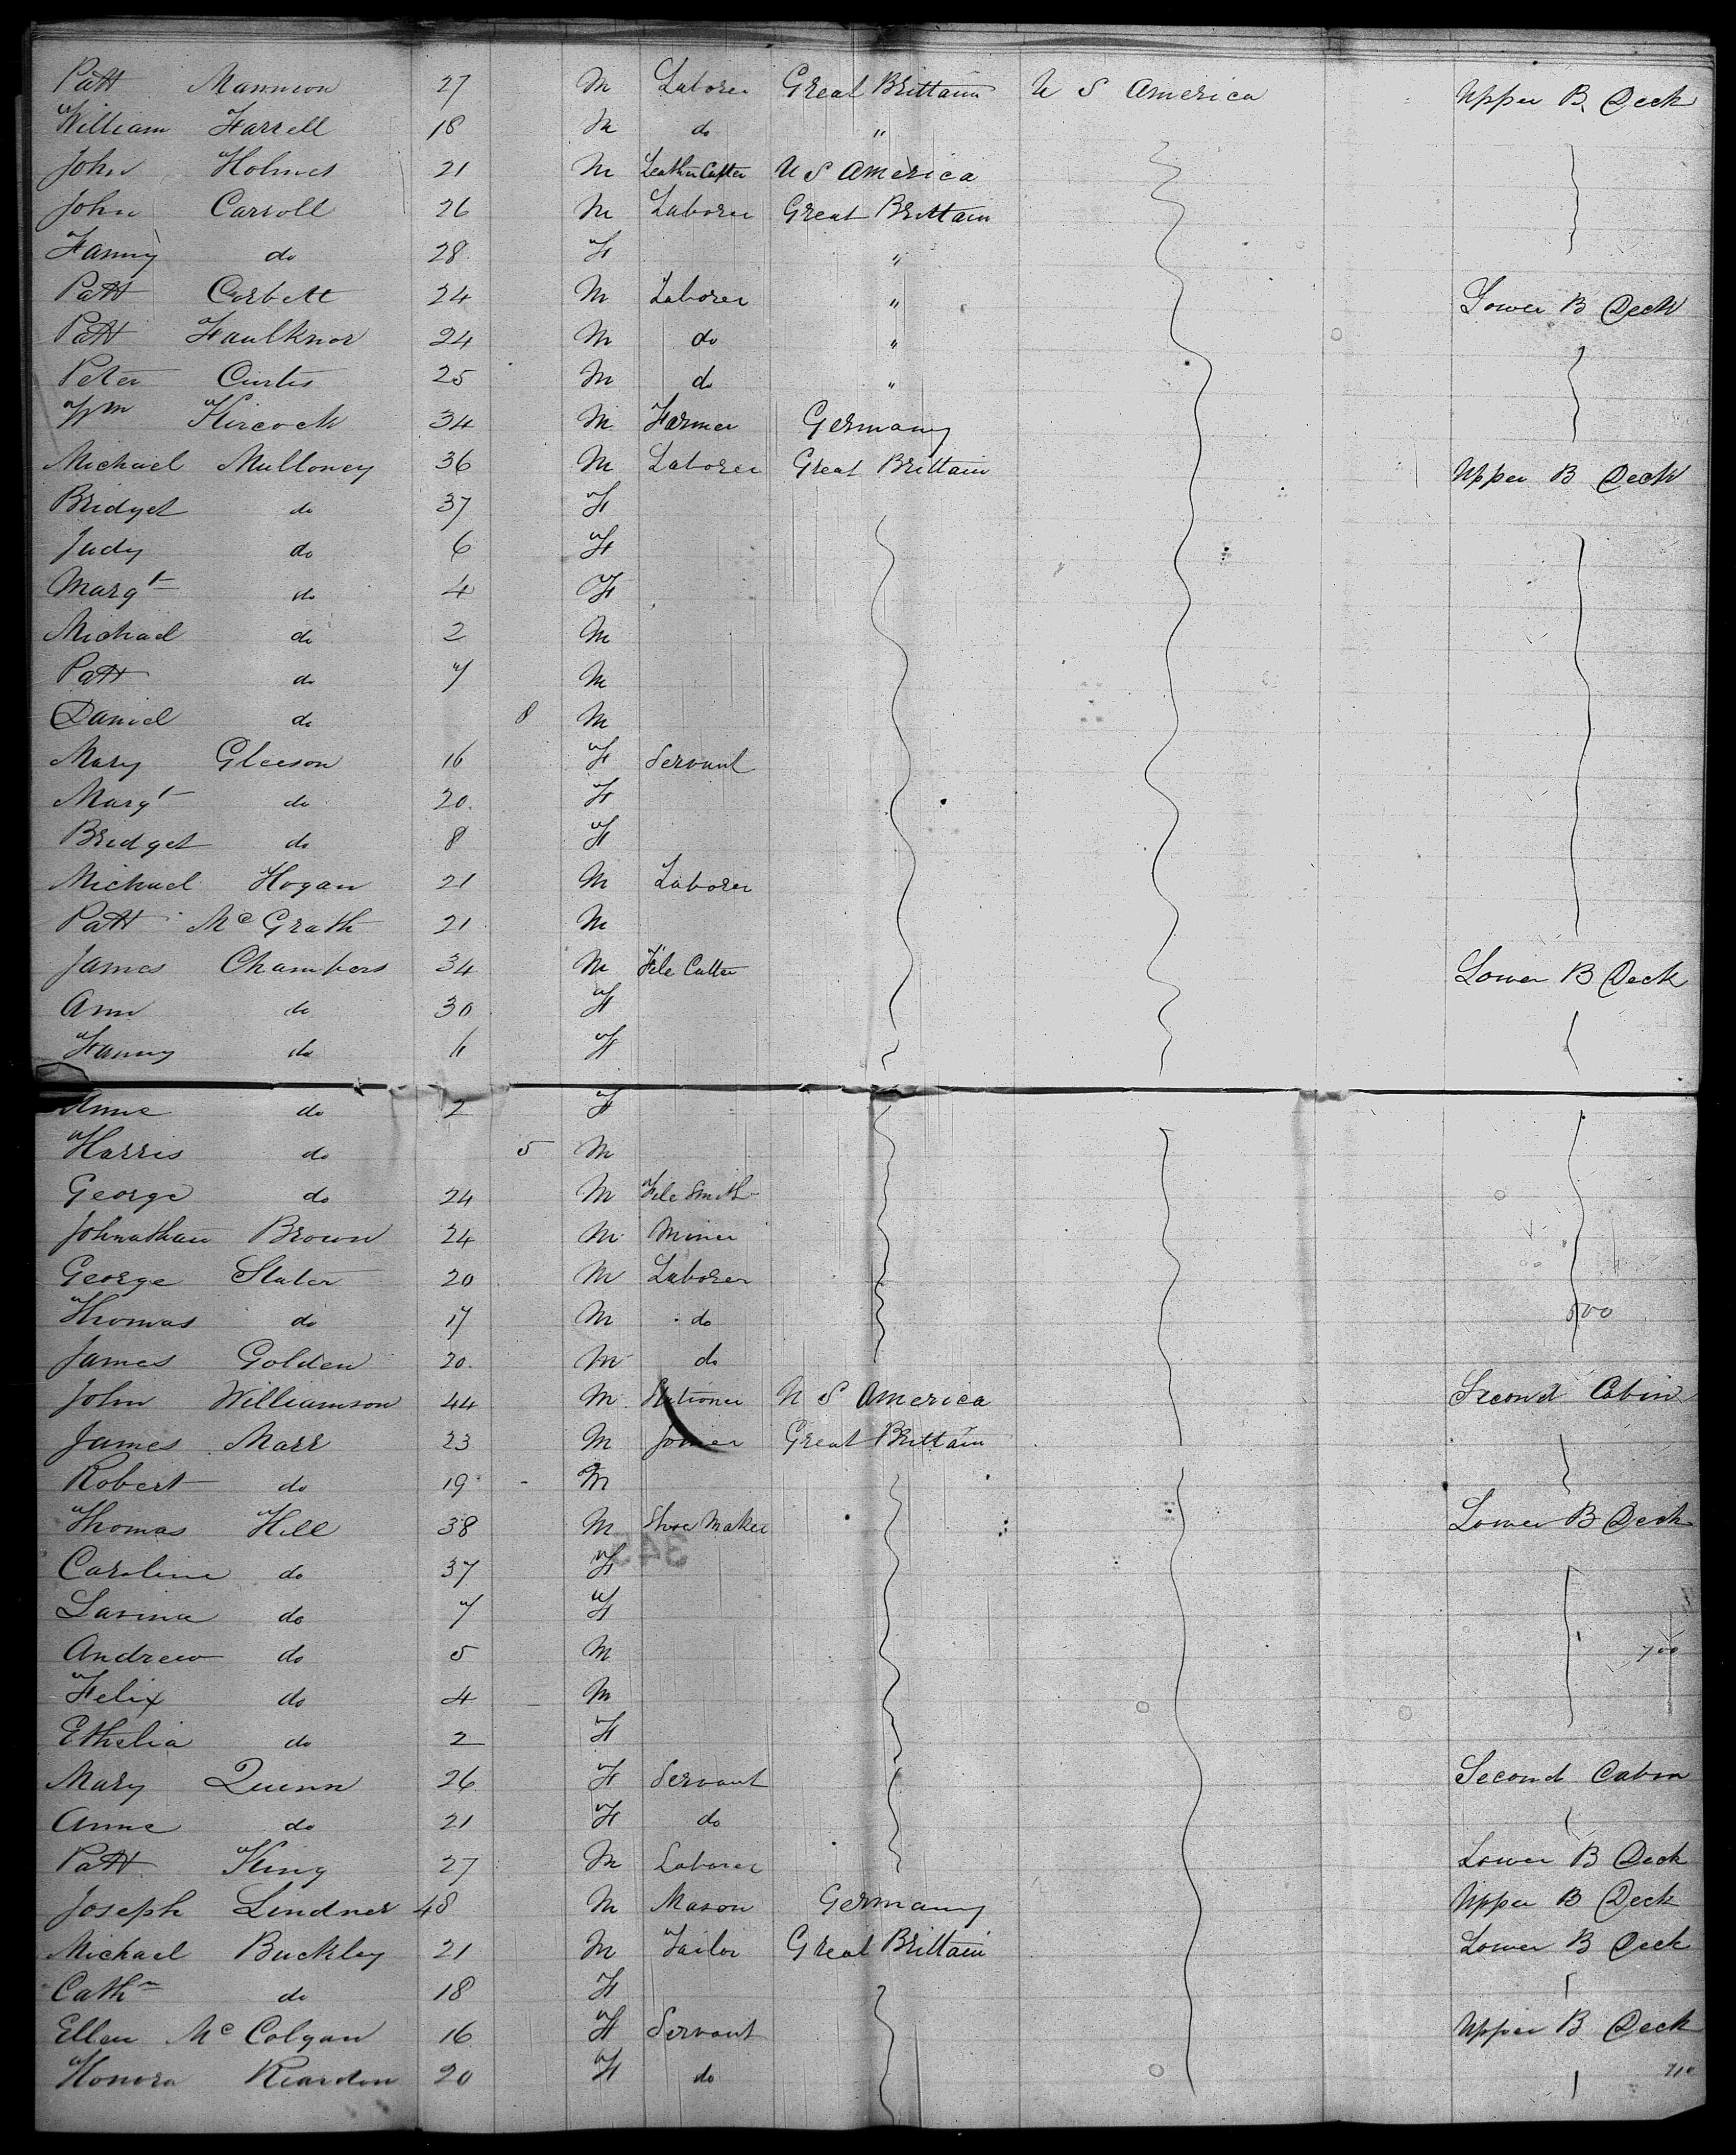 Patt Mannion 27 M Laborer Great Brittain U S America Upper B Deck
William Farrell 18 M do "
John Holmes 21 M Leather Cutter U S America
John Carroll 26 M Laborer Great Brittain
Fanny do 28 F "
Patt Corbett 24 M Laborer " Lower B Deck
Patt Faulknor 24 M do "
Peter Curtis 25 M do "
Wm Hircock 34 M Farmer Germany
Michael Mulloney 36 M Laborer Great Brittain Upper B Deck
Bridget do 37 F
Judy do 6 F
Margt do 4 F
Michael do 2 M
Patt do 7 M
Daniel do 8 M
Mary Gleeson 16 F Servant
Margt do 20 F
Bridget do 8 F
Michael Hogan 21 M Laborer
Patt Mc Grath 21 M
James Chambers 34 M File Cutter Lower B Deck
Ann do 30 F
Fanny do 4 F
Anne do 2 F
Harris do 5 M
George do 24 M File Smith
Johnathan Brown 24 M Miner
George Slater 20 M Laborer
Thomas do 17 M do
James Golden 20 M do
John Williamson 44 M Stationer U S America Second Cabin
James Marr 23 M Joiner Great Brittain
Robert do 19 M
Thomas Hill 38 M Shoe Maker Lower B Deck
Caroline do 37 F
Lavina do 7 F
Andrew do 5 M 700
Felix do 4 M
Ethelia do 2 F
Mary Quinn 26 F Servant Second Cabin
Anne do 21 F do
Patt King 27 M Laborer Lower B Deck
Joseph Lindner 48 M Mason Germany Upper B Deck
Michael Buckley 21 M Tailor Great Brittain Lower B Deck
Cathn do 18 F
Ellen Mc Colgan 16 F Servant Upper B Deck
Honora Reardon 20 F do 710